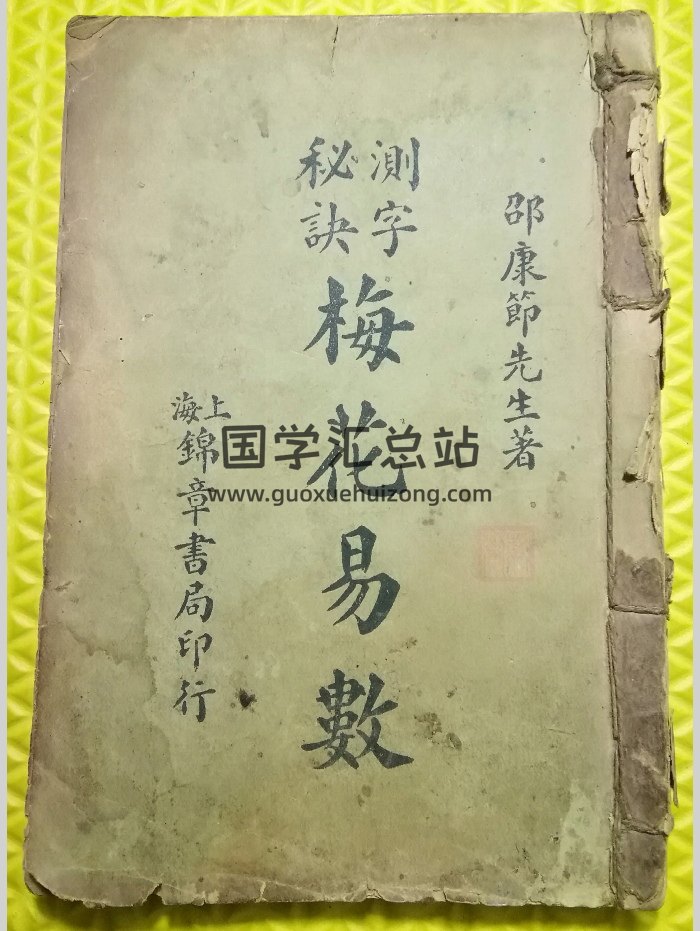 邵康節先生著
測字
秘訣
梅花易數
上海
錦章書局印行
国学汇总站
www.guoxuehuizong.com